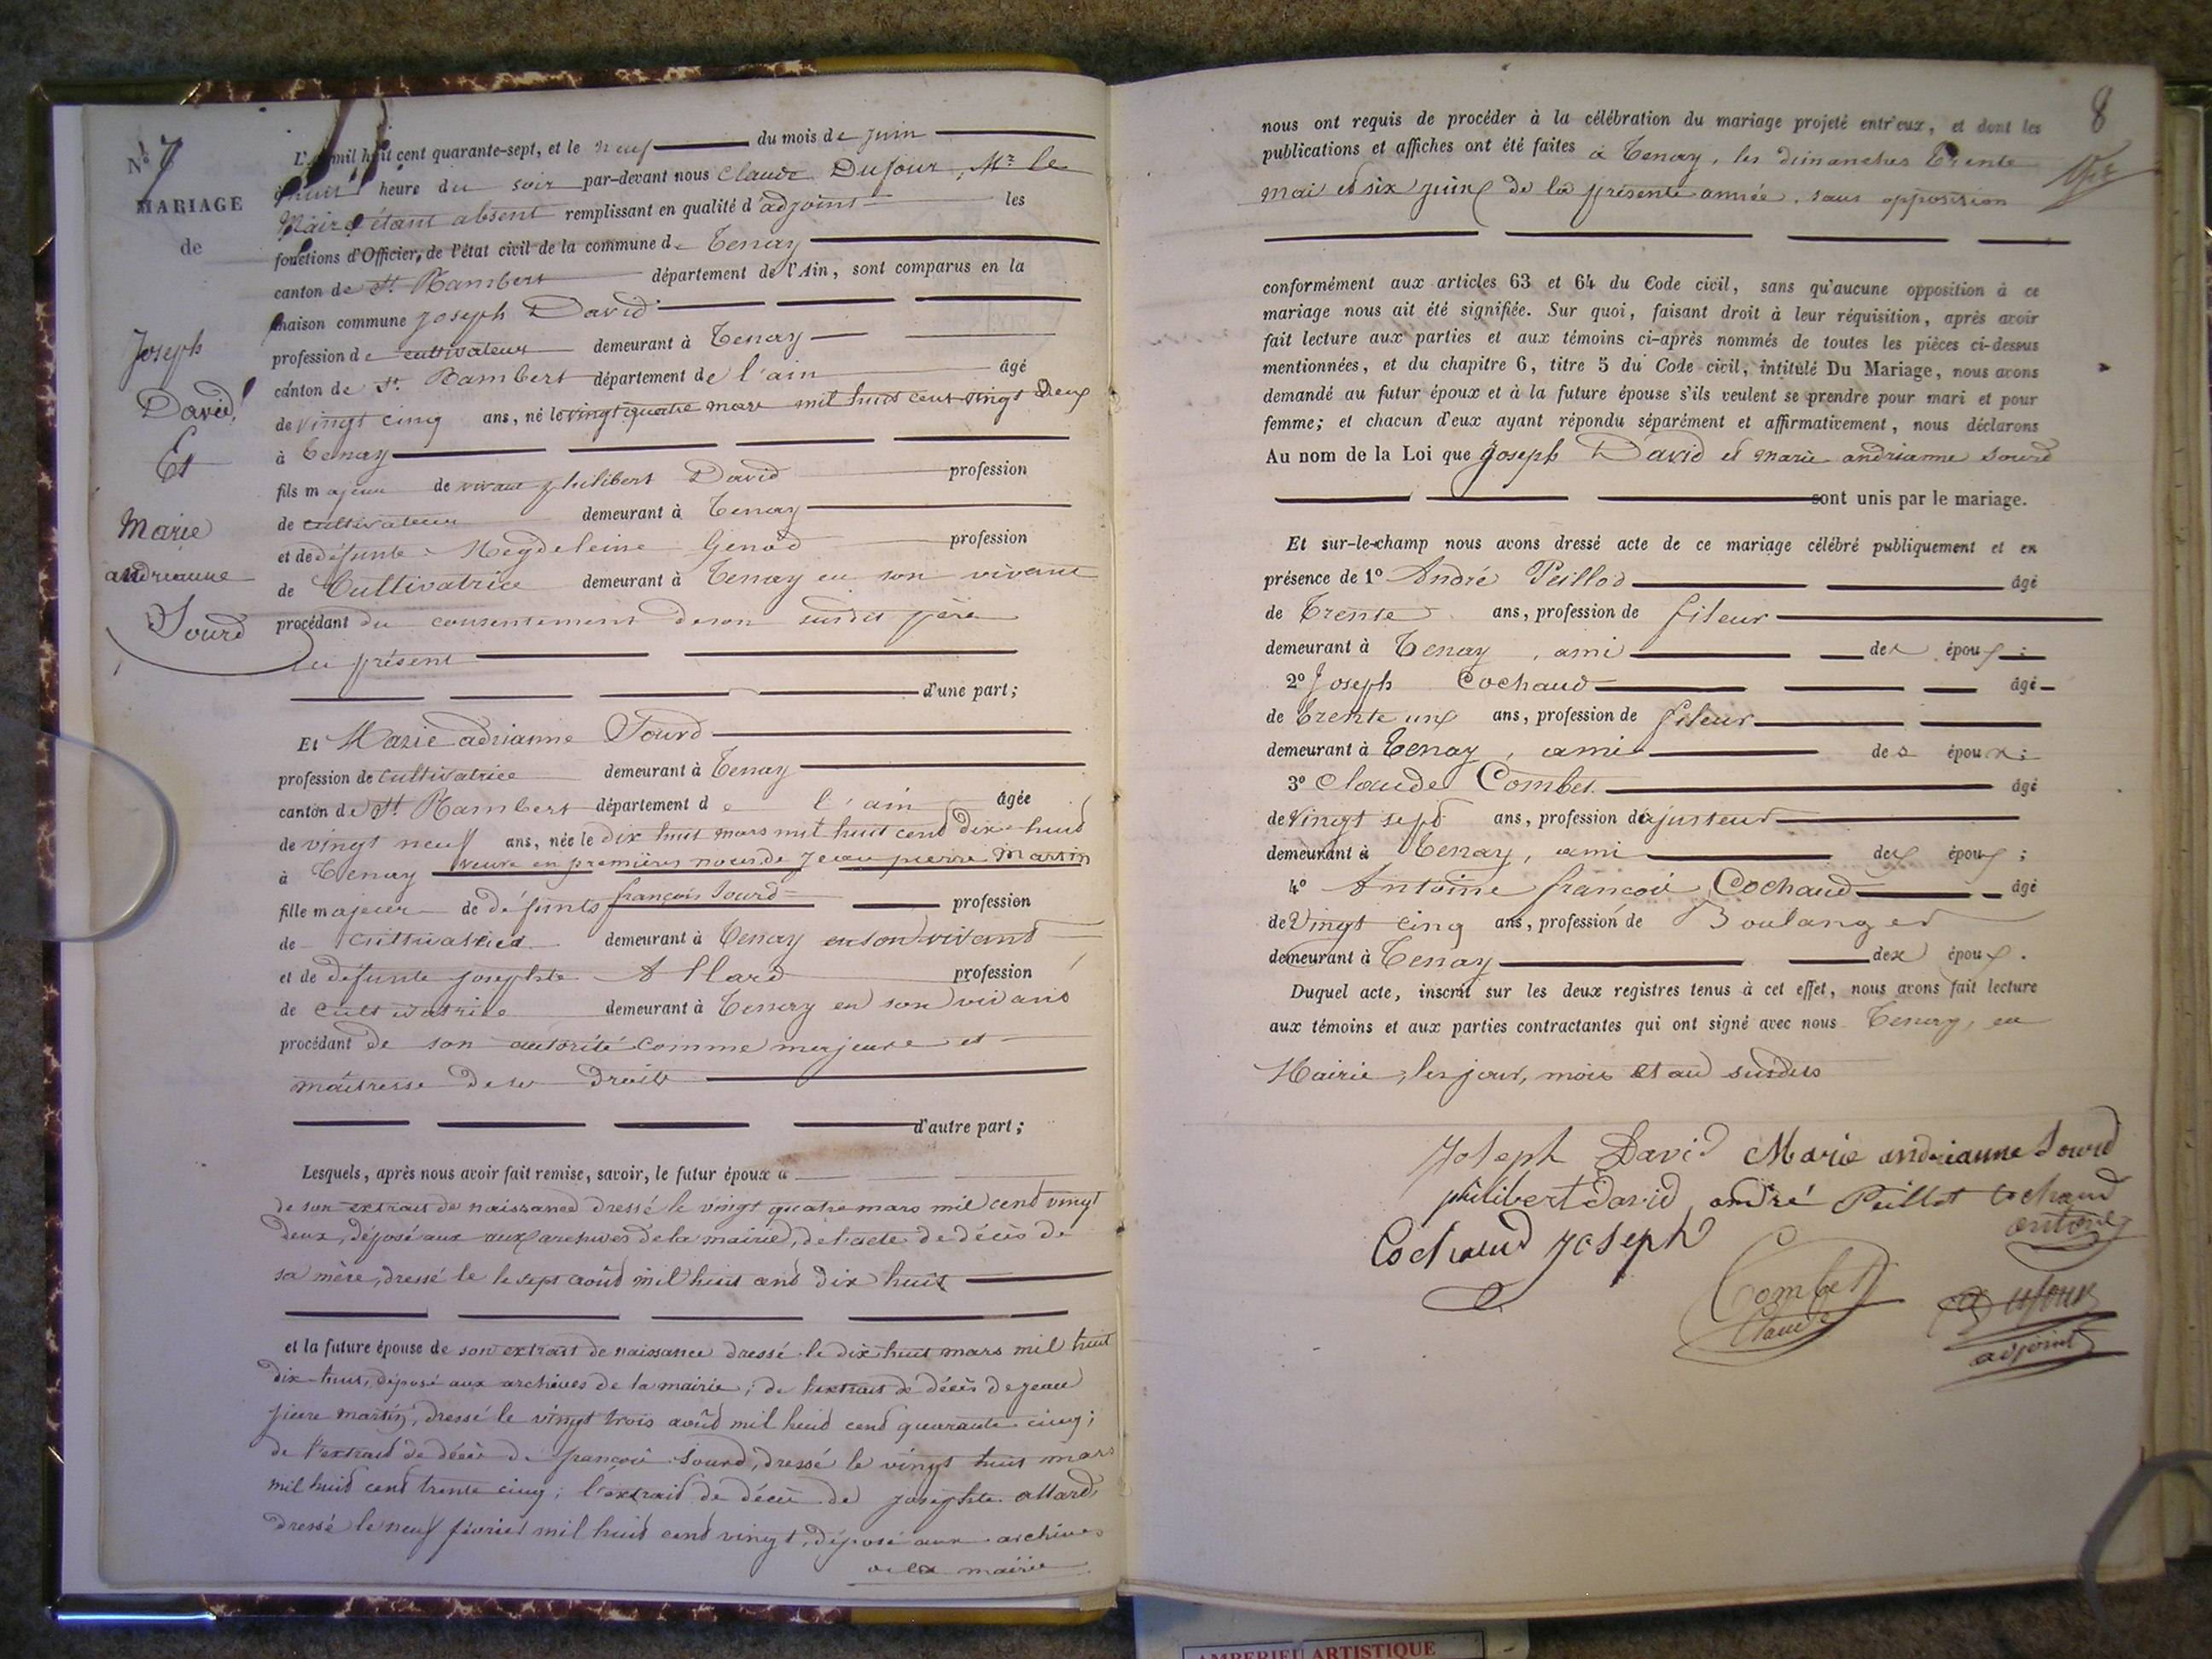 N° 7
MARIAGE
de
Joseph
David
Et
Marie
andrianne
Sourd
L'an mil huit cent quarante-sept, et le neuf du mois de juin
à huit heure du soir par-devant nous Claude Dufour, Mr le
Maire étant absent remplissant en qualité d'adjoint les
fonctions d'Officier, de l'état civil de la commune de Tenay
canton de St. Rambert département de l'Ain, sont comparus en la
maison commune Joseph David
profession de cultivateur demeurant à Tenay
canton de St. Rambert département de l'ain âgé
de vingt cinq ans, né le vingt quatre mars mil huit cent vingt deux
à Tenay
fils majeur de vivant philibert David profession
de cultivateur demeurant à Tenay
et de défunte Magdeleine Genod profession
de Cultivatrice demeurant à Tenay en son vivant
procédant du consentement de son susdit père
ici présent
d'une part;
Et Marie adrianne Sourd
profession de cultivatrice demeurant à Tenay
canton de St Rambert département de l'ain âgée
de vingt neuf ans, née le dix huit mars mil huit cent dix-huit
à Tenay veuve en premières noces de Jean pierre Martin
fille majeur de défunts françois Sourd profession
de cultivateur demeurant à Tenay en son vivant
et de défunte josephte Allard profession
de cultivatrice demeurant à Tenay en son vivant
procédant de son autorité comme majeure et
maitresse de ses droits
d'autre part;
Lesquels, après nous avoir fait remise, savoir, le futur époux
de son extrait de naissance dressé le vingt quatre mars mil cent vingt
deux, déposé aux aux archives de la mairie, de l'acte de décès de
sa mère, dressé le le sept août mil huit cent dix huit
et la future épouse de son extrait de naissance dressé le dix huit mars mil huit
dix-huit, déposé aux archives de la mairie; de l'extrait de décès de jean
pierre martin, dressé le vingt trois août mil huit cent quarante cinq;
de l'extrait de décès de françois Sourd, dressé le vingt huit mars
mil huit cent trente cinq; l'extrait de décès de josephte allard,
dressé le neuf février mil huit cent vingt, déposé aux archives
de la mairie
8
nous ont requis de procéder à la célébration du mariage projeté entr'eux, et dont les
publications et affiches ont été faites à Tenay, les dimanches trente
mai et six juin de la présente année, sans opposition
conformément aux articles 63 et 64 du Code civil, sans qu'aucune opposition à ce
mariage nous ait été signifiée. Sur quoi, faisant droit à leur réquisition, après avoir
fait lecture aux parties et aux témoins ci-après nommés de toutes les pièces ci-dessus
mentionnées, et du chapitre 6, titre 5 du Code civil, intitulé Du Mariage, nous avons
demandé au futur époux et à la future épouse s'ils veulent se prendre pour mari et pour
femme; et chacun d'eux ayant répondu séparément et affirmativement, nous déclarons
Au nom de la Loi que Joseph David et marie andrianne Sourd
sont unis par le mariage.
Et sur-le-champ nous avons dressé acte de ce mariage célébré publiquement et en
présence de 1° André Peillod âgé
de Trente ans, profession de fileur
demeurant à Tenay, ami des époux;
2° Joseph Cochaud âgé
de trente un ans, profession de fileur
demeurant à Tenay, ami des époux;
3° Claude Combet âgé
de Vingt sept ans, profession d'ajusteur
demeurant à Tenay, ami des époux;
4° Antoine françois Cochaud âgé
de Vingt cinq ans, profession de Boulanger
demeurant à Tenay des époux.
Duquel acte, inscrit sur les deux registres tenus à cet effet, nous avons fait lecture
aux témoins et aux parties contractantes qui ont signé avec nous Tenay, en
Mairie, les jour, mois et an susdits
Joseph David Marie andrianne Sourd
philibert david andré Peillot Cochaud
antoine
Cochaud Joseph
Combet
Claude
Dufour
adjoint
AMBERIEU ARTISTIQUE